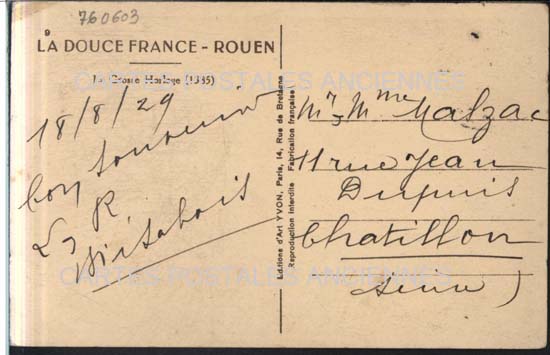 760603
9
LA DOUCE FRANCE - ROUEN
La Grosse Horloge (1385)
CARTES POSTALES ANCIENNES
18/8/29
bon souvenir
R
Editions d'Art YVON, Paris, 14, Rue de Bretagne
Reproduction interdite Fabrication française
Mr, Mme Malzac
11 rue Jean
Dupuis
Chatillon
Seine)
CARTES POSTALES ANCIENNES